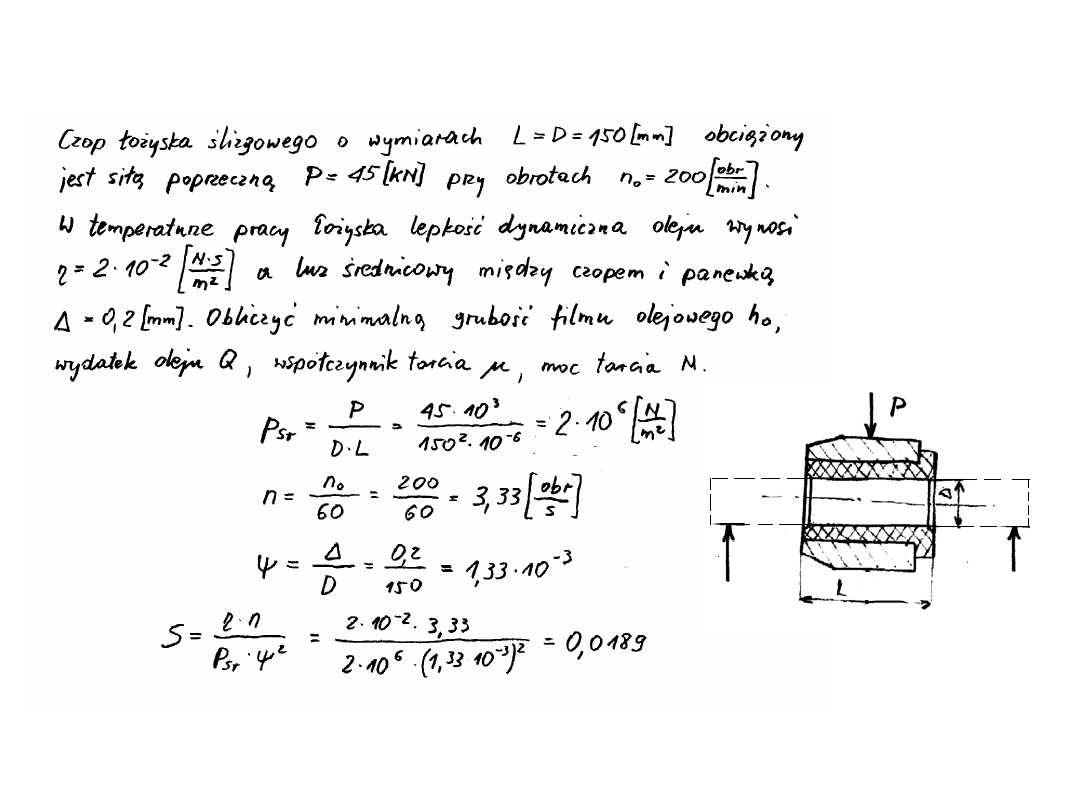 Czop łożyska ślizgowego o wymiarach L = D = 150 [mm] obciążony
jest siłą poprzeczną P = 45 [kN] przy obrotach n₀ = 200 [obr/min].
W temperaturze pracy łożyska lepkość dynamiczna oleju wynosi
η = 2·10⁻² [N·s/m²] a luz średnicowy między czopem i panewką
Δ = 0,2 [mm]. Obliczyć minimalną grubość filmu olejowego h₀,
wydatek oleju Q, współczynnik tarcia μ, moc tarcia N.
Pśr = P/(D·L) = 45·10³/(150²·10⁻⁶) = 2·10⁶ [N/m²]
n = n₀/60 = 200/60 = 3,33 [obr/s]
ψ = Δ/D = 0,2/150 = 1,33·10⁻³
S = η·n/(Pśr·ψ²) = 2·10⁻²·3,33/(2·10⁶·(1,33·10⁻³)²) = 0,0189
P
D
L